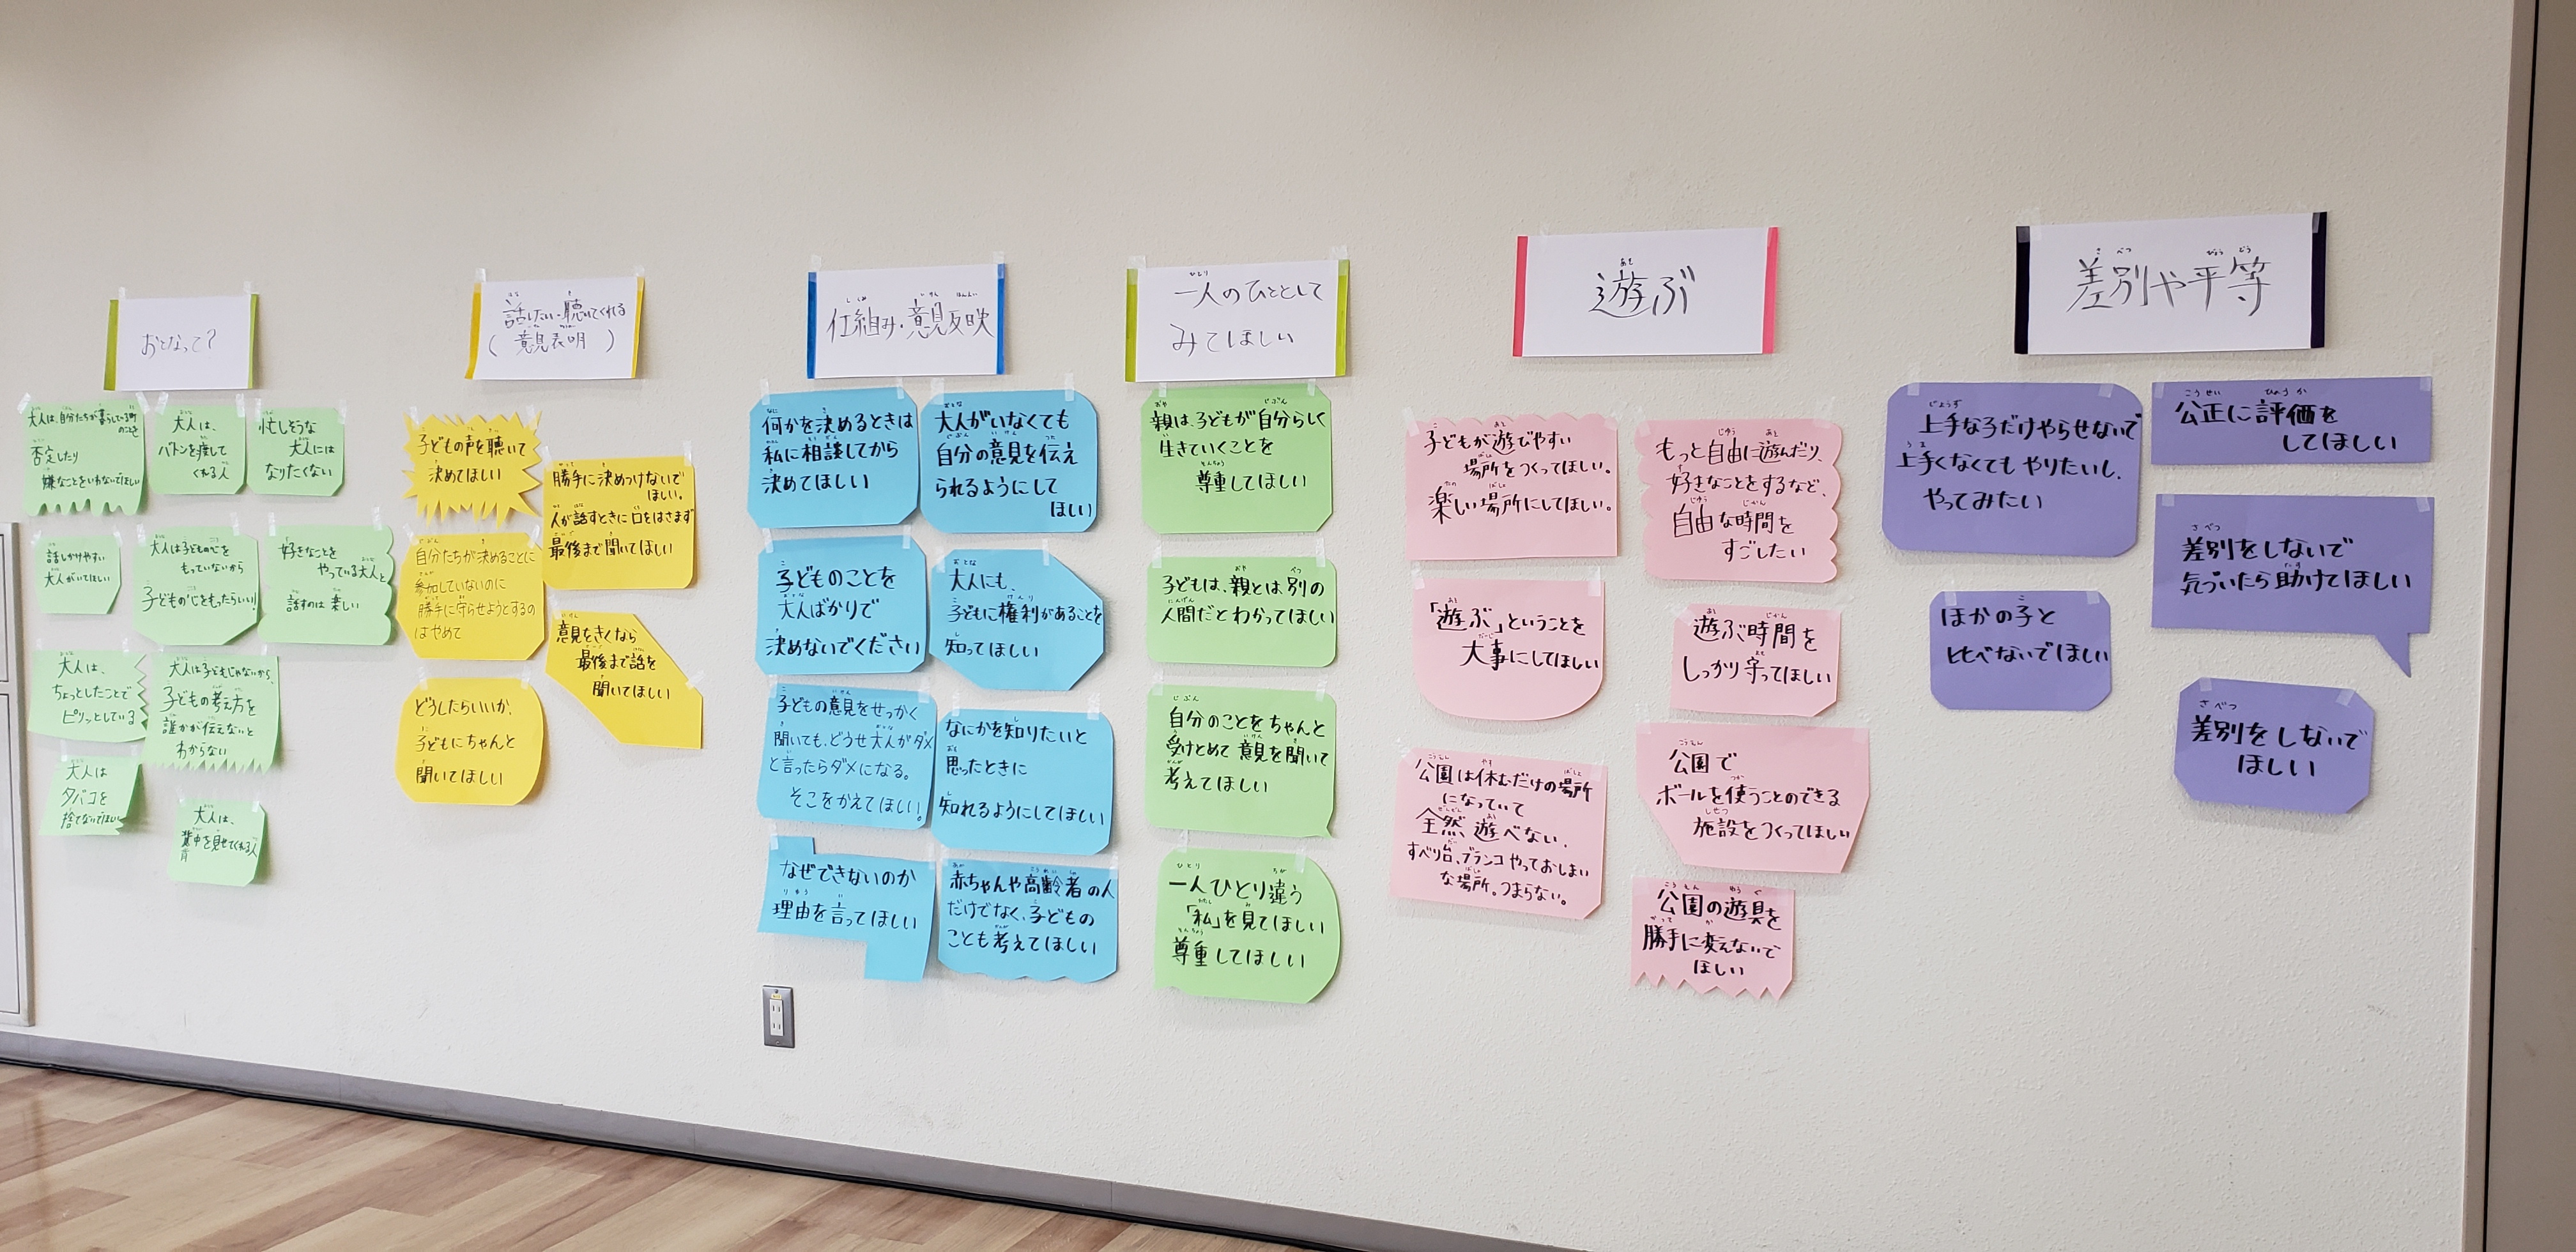 おとなって?
大人は、自分たちが暮らしている町
のことを
否定したり
嫌なことをいわないでほしい
大人は、
バトンを渡して
くれる人
忙しそうな
大人には
なりたくない
話しかけやすい
大人がいてほしい
大人は子どもの心を
もっていないから
子どもの心をもったらいい!
好きなことを
やっている大人と
話すのは楽しい
大人は、
ちょっとしたことで
ピリッとしている
大人は子どもじゃないから、
子どもの考え方を
誰かが伝えないと
わからない
大人は
タバコを
捨てないでほしい
大人は、
背中を見せてくれる人
話したい・聴いてくれる
(意見表明)
子どもの声を聴いて
決めてほしい
勝手に決めつけないで
ほしい。
人が話すときに口をはさまず
最後まで聞いてほしい
自分たちが決めることに
参加していないのに
勝手に守らせようとするの
はやめて
意見をきくなら
最後まで話を
聞いてほしい
どうしたらいいか、
子どもにちゃんと
聞いてほしい
仕組み・意見反映
何かを決めるときは
私に相談してから
決めてほしい
大人がいなくても
自分の意見を伝え
られるようにして
ほしい
子どものことを
大人ばかりで
決めないでください
大人にも、
子どもに権利があることを
知ってほしい
子どもの意見をせっかく
聞いても、どうせ大人がダメ
と言ったらダメになる。
そこをかえてほしい!
なにかを知りたいと
思ったときに
知れるようにしてほしい
なぜできないのか
理由を言ってほしい
赤ちゃんや高齢者の人
だけでなく、子どもの
ことも考えてほしい
一人のひととして
みてほしい
親は、子どもが自分らしく
生きていくことを
尊重してほしい
子どもは、親とは別の
人間だとわかってほしい
自分のことをちゃんと
受けとめて意見を聞いて
考えてほしい
一人ひとり違う
「私」を見てほしい
尊重してほしい
遊ぶ
子どもが遊びやすい
場所をつくってほしい。
楽しい場所にしてほしい。
もっと自由に遊んだり、
好きなことをするなど、
自由な時間を
すごしたい
「遊ぶ」ということを
大事にしてほしい
遊ぶ時間を
しっかり守ってほしい
公園は休むだけの場所
になっていて
全然遊べない。
すべり台、ブランコやっておしまい
な場所。つまらない。
公園で
ボールを使うことのできる
施設をつくってほしい
公園の遊具を
勝手に変えないで
ほしい
差別や平等
上手な子だけやらせないで
上手くなくてもやりたいし、
やってみたい
公正に評価を
してほしい
差別をしないで
気づいたら助けてほしい
ほかの子と
比べないでほしい
差別をしないで
ほしい